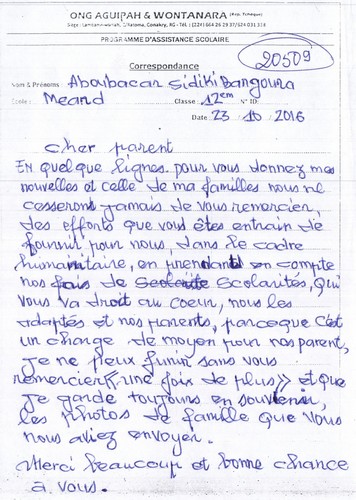 ONG AGUIPAH & WONTANARA
PROGRAMME D'ASSISTANCE SCOLAIRE
20509
Correspondance
Nom & Prénoms Aboubacar Sidiki Bangoura
Ecole: Meard Classe: 12em N° ID:
Date: 23 10 2016
cher parent
EN quelque lignes pour vous donnez mes
nouvelles et celle de ma familles nous ne
cesseront jamais de vous remercier,
des efforts que vous êtes entrain de
fournir pour nous, dans le cadre
humanitaire, en prenant en compte
nos fais de Scolarités, qui
vous va droit au coeur, nous les
adaptés et nos parents, parceque c'est
un change de moyen pour nos parent,
je ne peux finir sans vous
remercier << une fois de plus >> et que
je garde toujours en souvenir,
les photos de famille que vous
nous aviez envoyer.
Merci beaucoup et bonne chance
à vous.